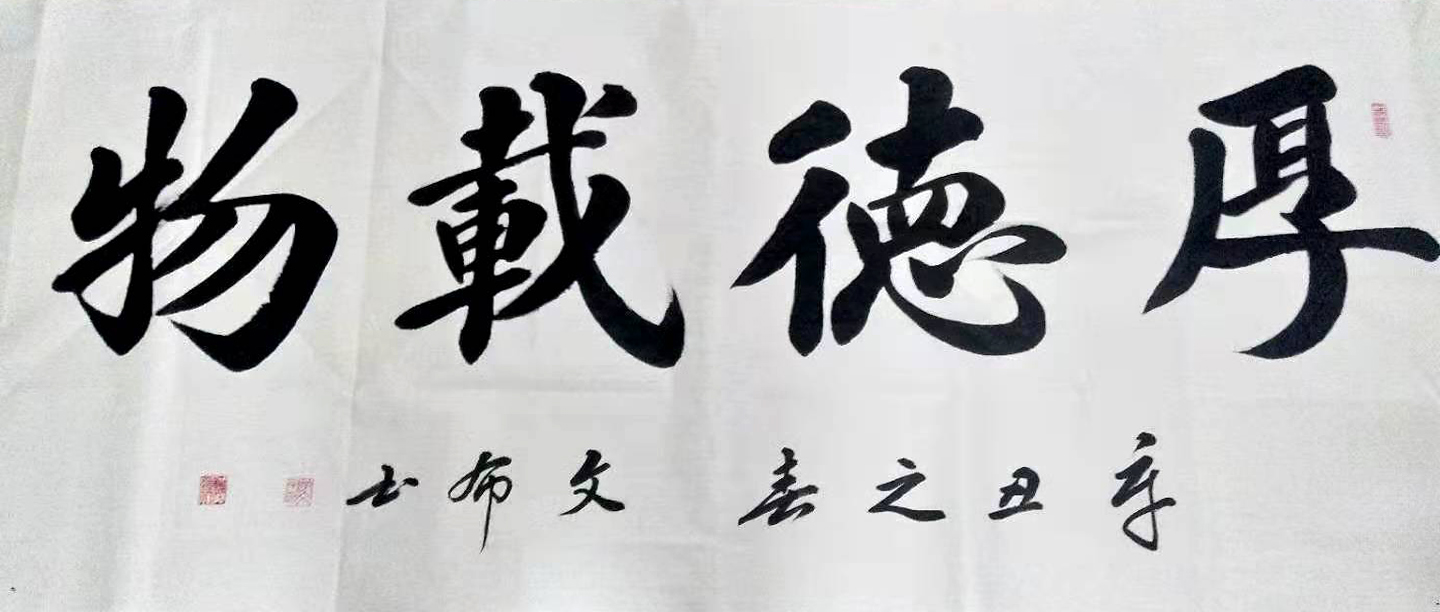 厚德載物
辛丑之春 文布书